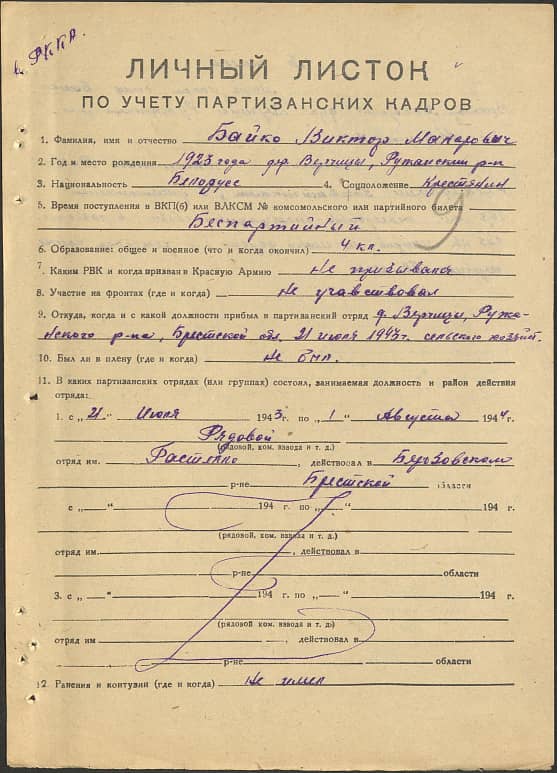 в РККА.
ЛИЧНЫЙ ЛИСТОК
ПО УЧЕТУ ПАРТИЗАНСКИХ КАДРОВ
1. Фамилия, имя и отчество Байко Виктор Макарович
2. Год и место рождения 1923 года дер Верчицы, Ружанский р-н
3. Национальность Белорус 4. Соцположение Крестянин
5. Время поступления в ВКП(б) или ВЛКСМ № комсомольского или партийного билета
Беспартийный
9
6. Образование: общее и военное (что и когда окончил) 4 кл.
7. Каким РВК и когда призван в Красную Армию Не призывался
8. Участие на фронтах (где и когда) Не учавствовал
9. Откуда, когда и с какой должности прибыл в партизанский отряд д. Верчицы, Ружа-
нского р-на, Брестской обл. 21 июля 1943 г. сельского хозяйст.
10. Был ли в плену (где и когда) Не был.
11. В каких партизанских отрядах (или группах) состоял, занимаемая должность и район действия
отряда:
1. с „21" Июля 1943 г. по „1" Августа 1944 г.
Рядовой
(рядовой, ком. взвода и т. д.)
отряд им. , действовал в Березовском
р-не Брестской области
с „ " 194 г. по „ " 194 г.
(рядовой, ком. взвода и т. д.)
отряд им. , действовал в
р-не области
3. с „ " 194 г. по „ " 194 г.
(рядовой, ком. взвода и т. д.)
отряд им. , действовал в
р-не области
12. Ранения и контузии (где и когда) Не имел